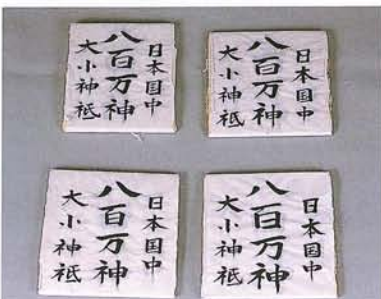 日本国中
八百万神
大小神祇
日本国中
八百万神
大小神祇
日本国中
八百万神
大小神祇
日本国中
八百万神
大小神祇